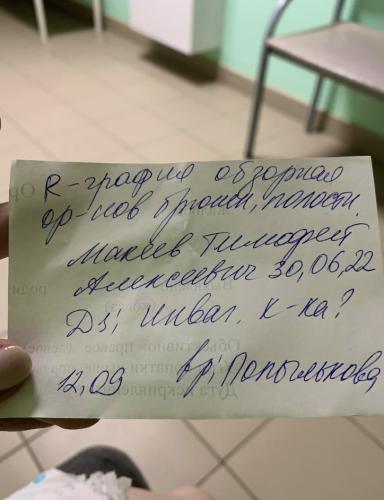 R-графия обзорная
ор-нов брюшн, полости.
Макеев Тимофей
Алексеевич 30,06,22
Dз; инваг. к-ка?
12,09 вр; Попылькова